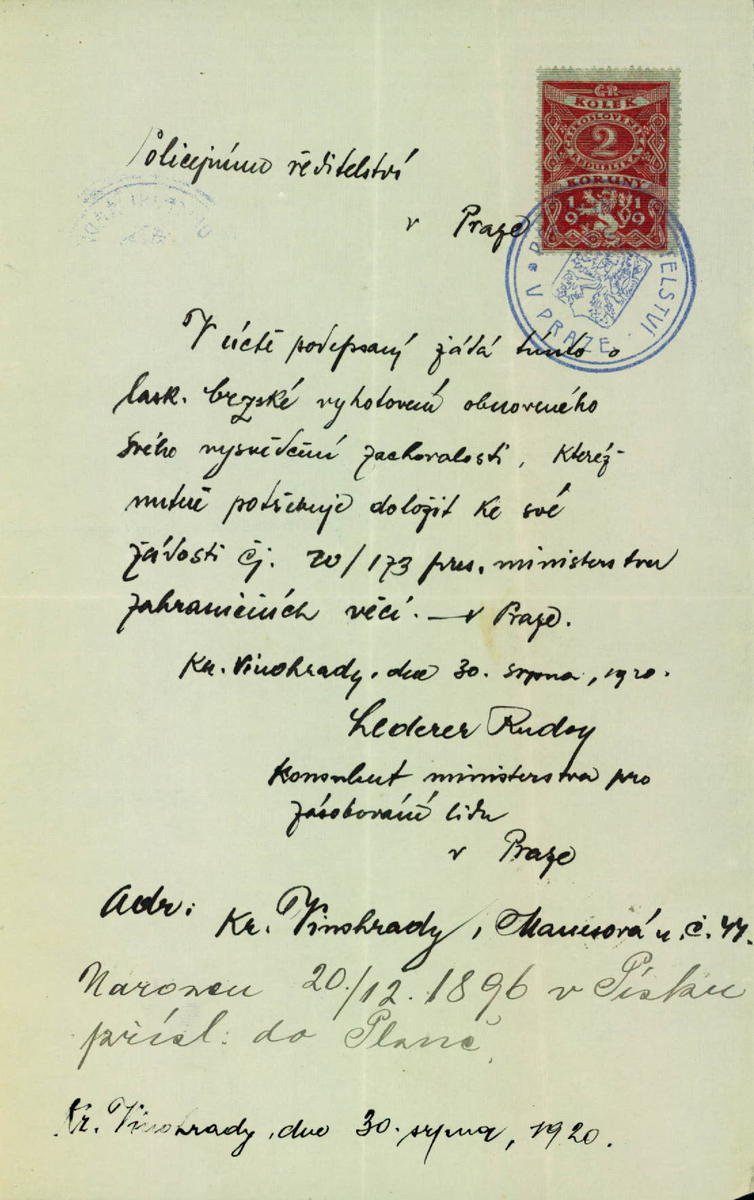 Č.R.
KOLEK
ČESKOSLOVENSKÁ
2
REPUBLIKA
KORUNY
1919
Policejnímu ředitelství
v Praze
ŘEDITELSTVÍ
V PRAZE
V úctě podepsaný žádá tímto o
lask. brzské vyhotovení obnoveného
svého vysvědčení zachovalosti, kteréž
nutně potřebuje doložit ke své
žádosti čj. 20/173 pres. ministerstva
zahraničních věcí. — v Praze.
Kr. Vinohrady, dne 30. srpna, 1920.
Lederer Rudolf
Konsulent ministerstva pro
zásobování lidu
v Praze
Adr: Kr. Vinohrady, Manesová u. č. 44.
Narozen 20/12. 1896 v Písku
přísl. do Plané
Kr. Vinohrady, dne 30. srpna, 1920.